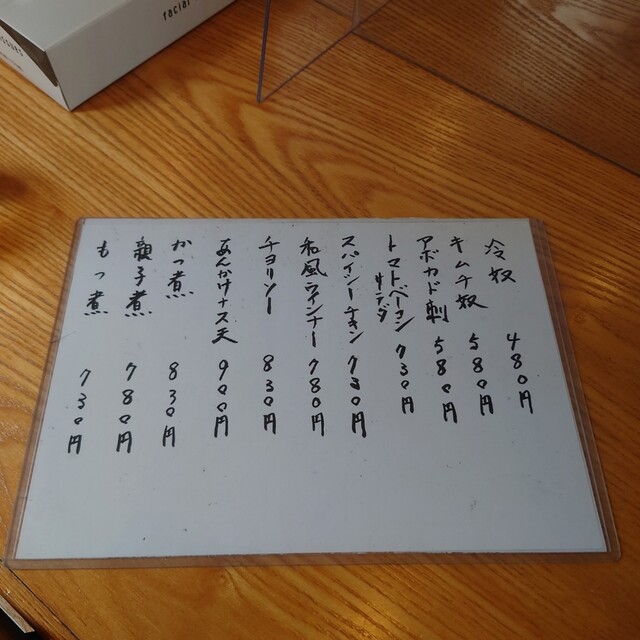 冷奴 480円
キムチ奴 580円
アボカド刺 580円
トマトベーコン
サラダ 730円
スパイシーチキン 730円
和風ウインナー 780円
チョリソー 830円
あんかけナス天 900円
かつ煮 830円
親子煮 780円
もつ煮 730円
facial